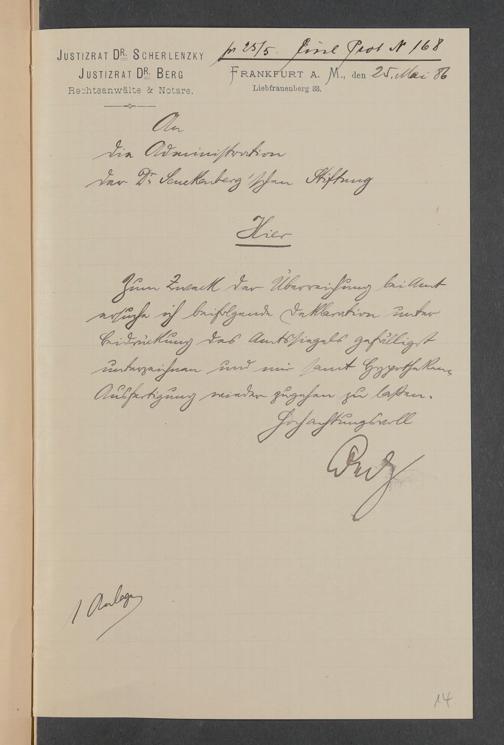 JUSTIZRAT DR. SCHERLENZKY
JUSTIZRAT DR. BERG
Rechtsanwälte & Notare.
pr 25/5. Prot N 168
FRANKFURT A. M., den 25. Mai 86
Liebfrauenberg 33.
An
die Administration
der Dr Senckenberg'schen Stiftung
Hier
Zum Zweck der Überreichung bei Amt
ersuche ich beifolgende Deklaration unter
Beidrückung des Amtssiegels gefälligst
unterzeichnen und mir samt Hypotheken-
Ausfertigung wieder zugehen zu lassen.
Hochachtungsvoll
Berg
1 Anlage
14